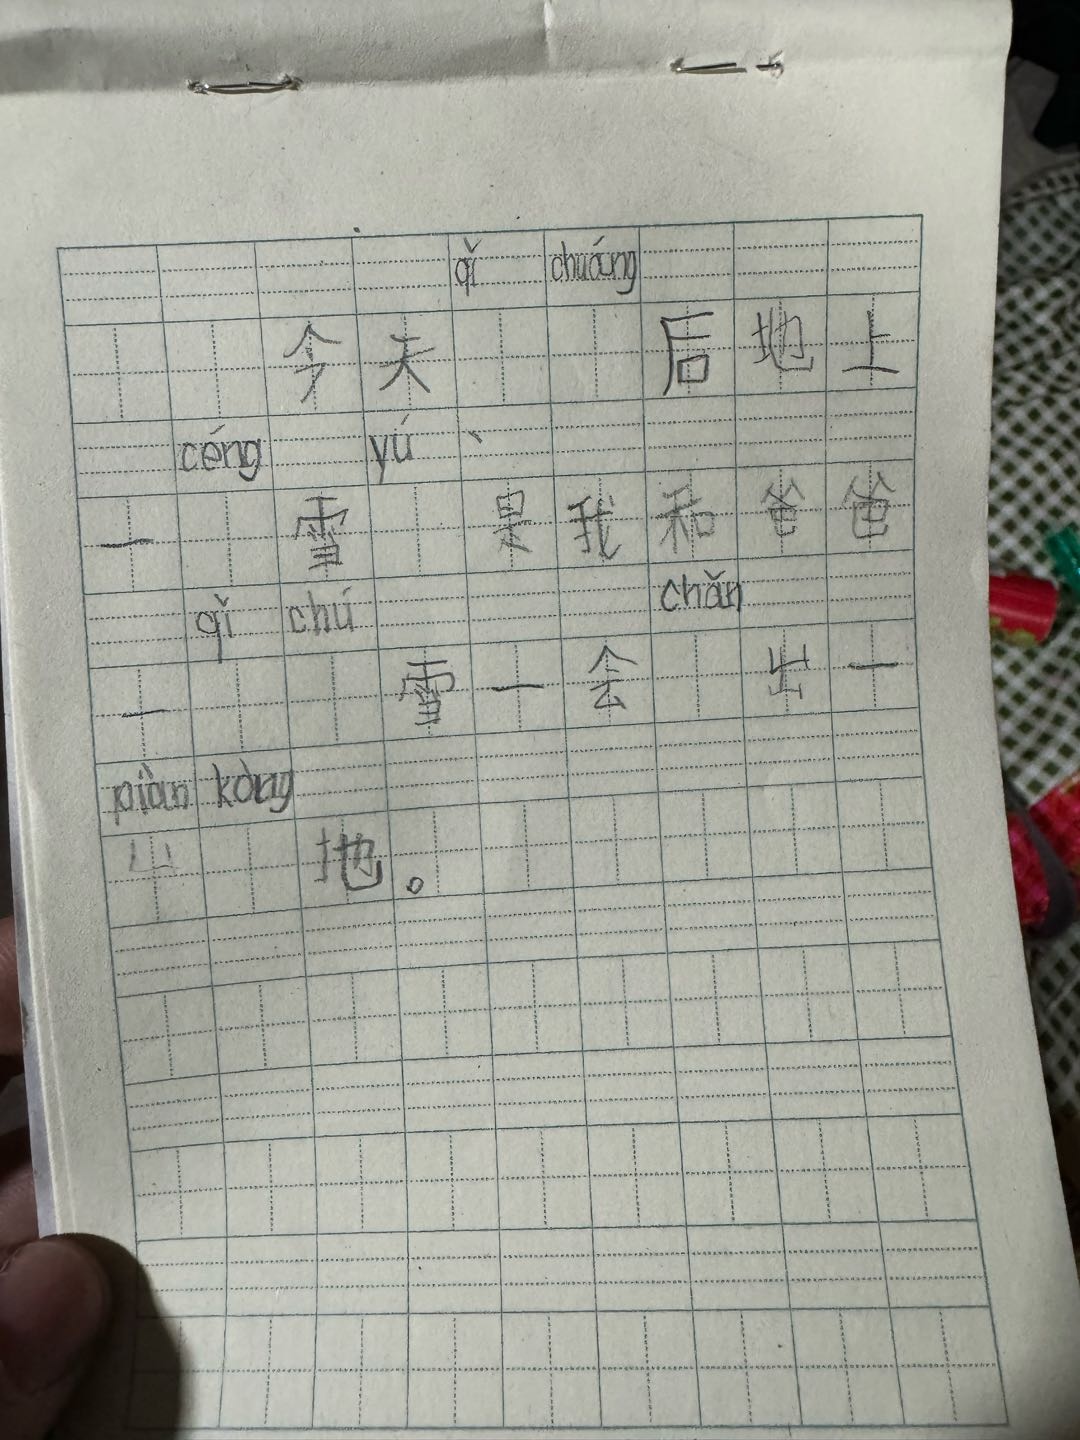 qǐ chuáng
今天后地上
céng yú
一雪是我和爸爸
qǐ chú chǎn
一雪一会出一
piàn kòng
地。